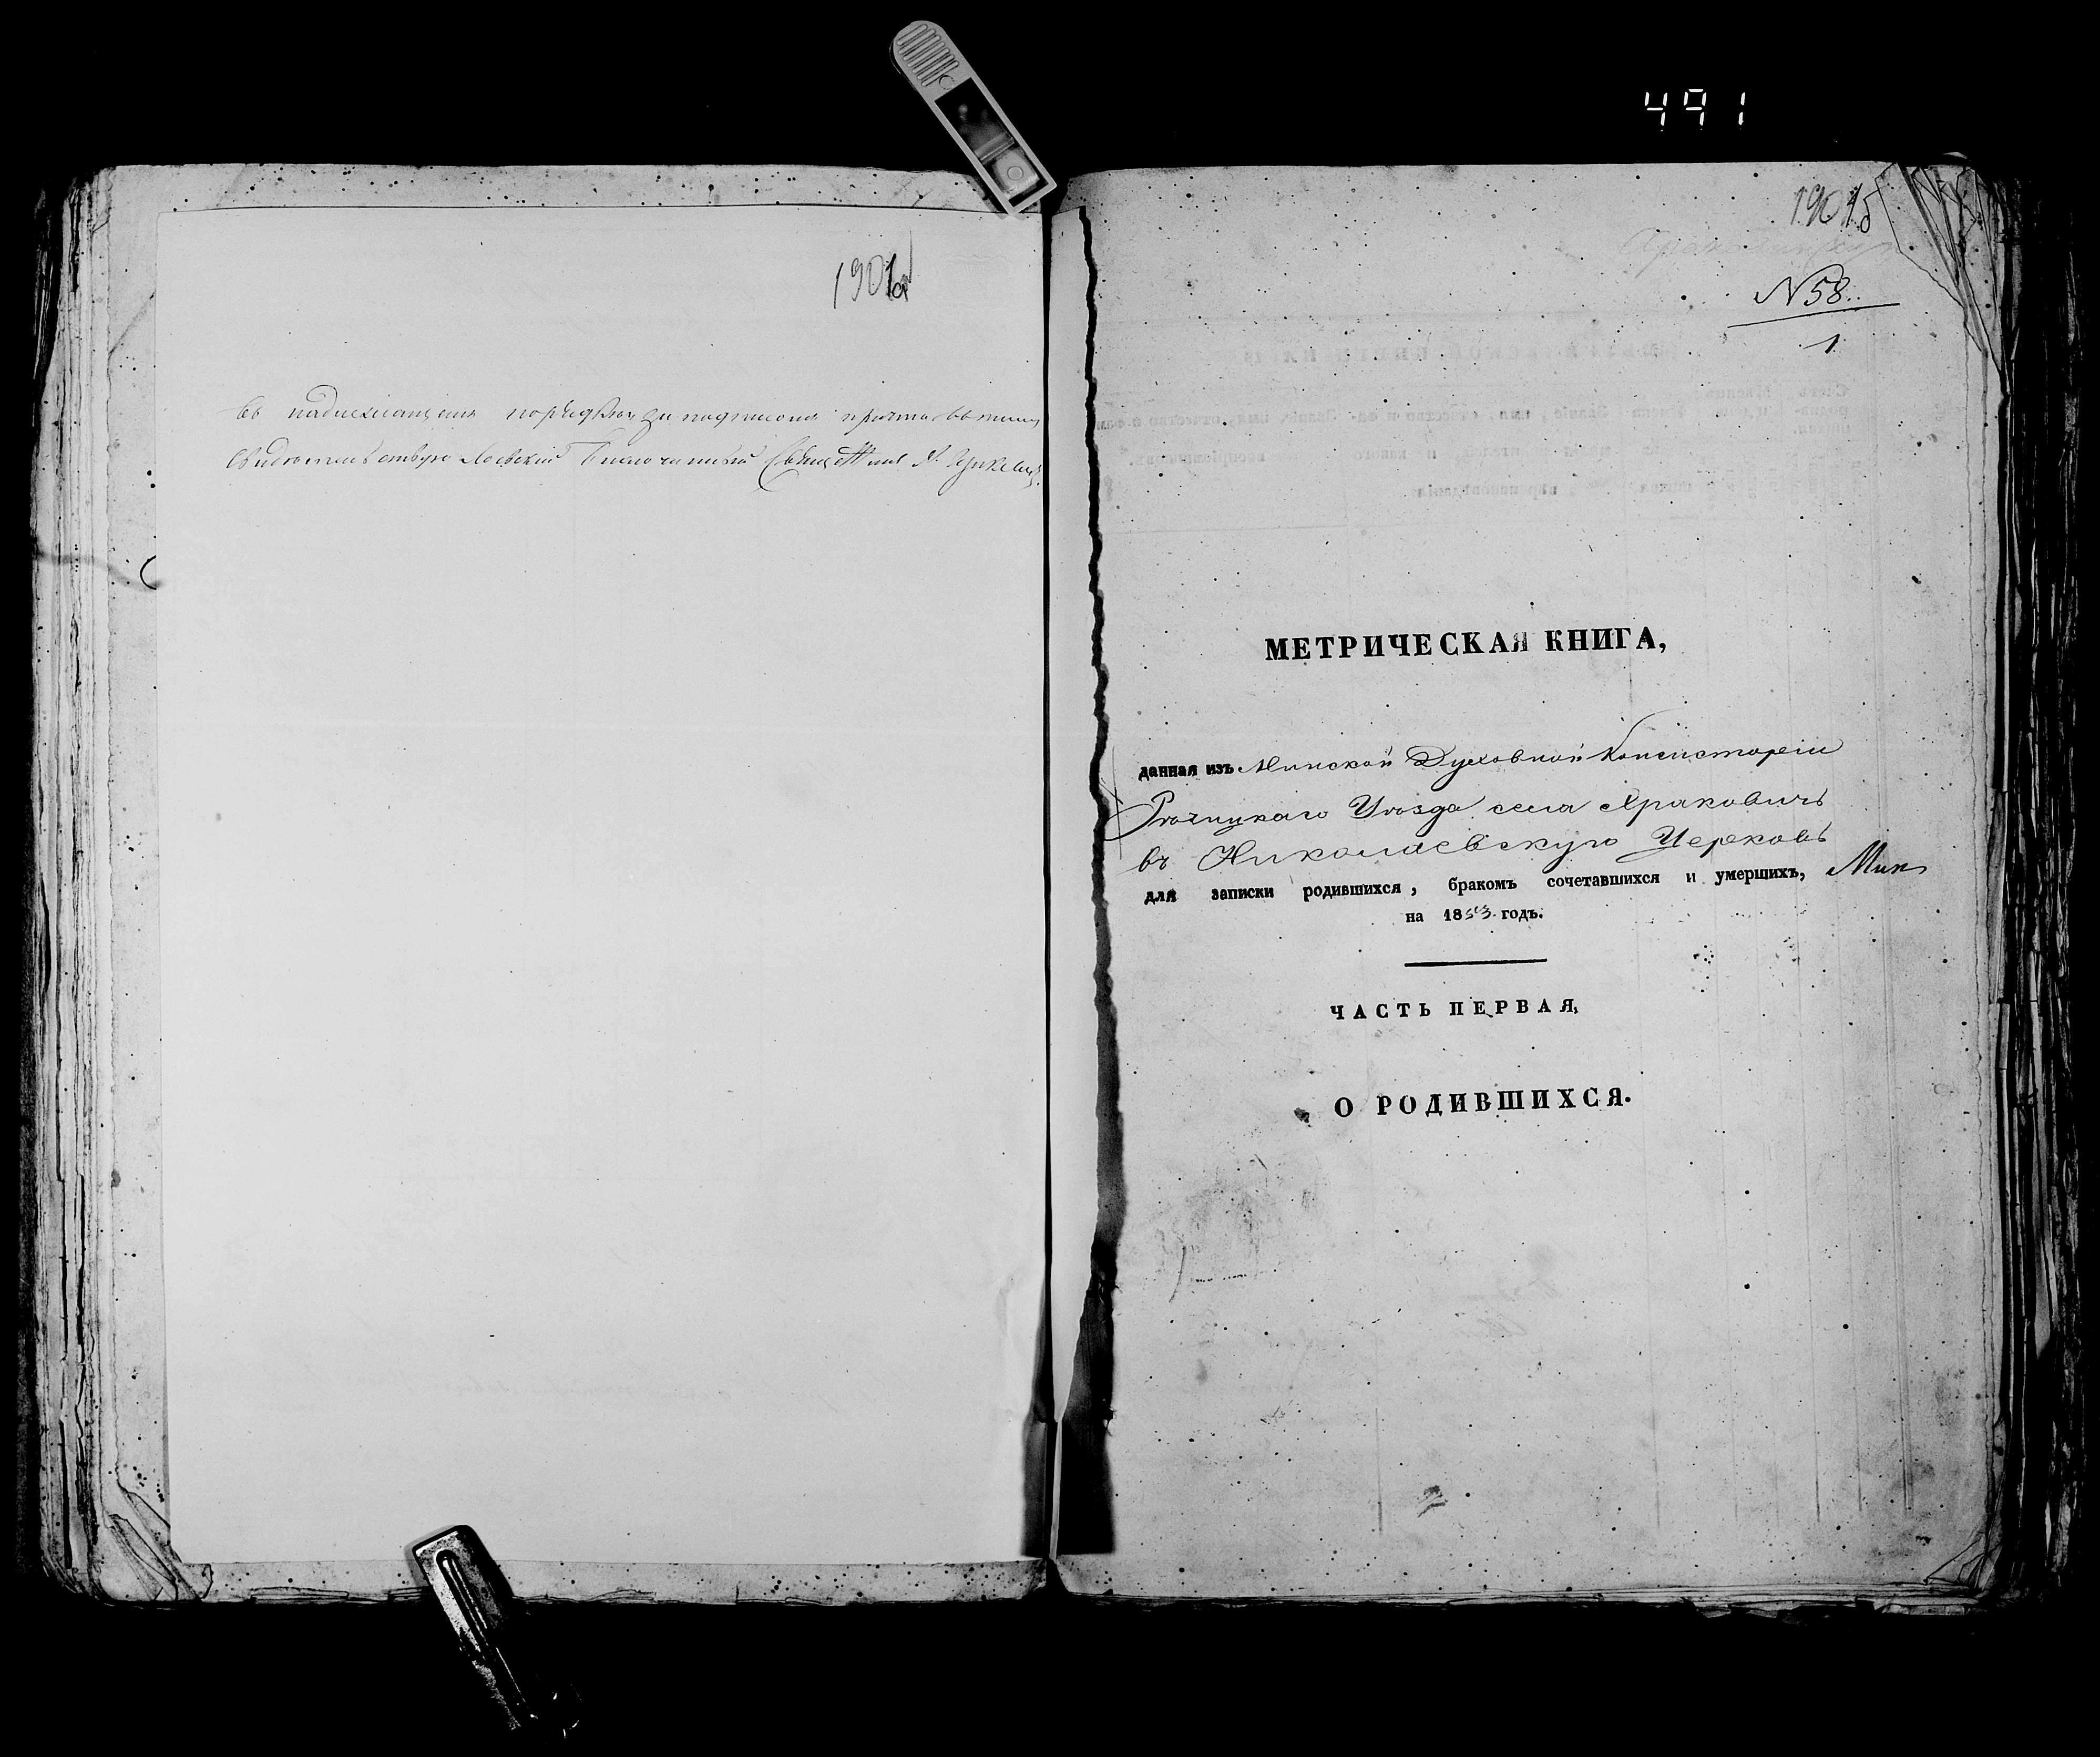 491
1901а
въ надлежащемъ порядкѣ за подписомъ причта въ томъ
свидѣтельствую Лоевскій Благочинный Священникъ
1901б
N 58.
1
МЕТРИЧЕСКАЯ КНИГА,
данная изъ Минской Духовной Консисторіи
Рѣчицкаго Уѣзда села Хракович
въ Николаевскую Церковь
для записки родившихся, бракомъ сочетавшихся и умершихъ, Мин
на 1853 годъ.
ЧАСТЬ ПЕРВАЯ,
О РОДИВШИХСЯ.